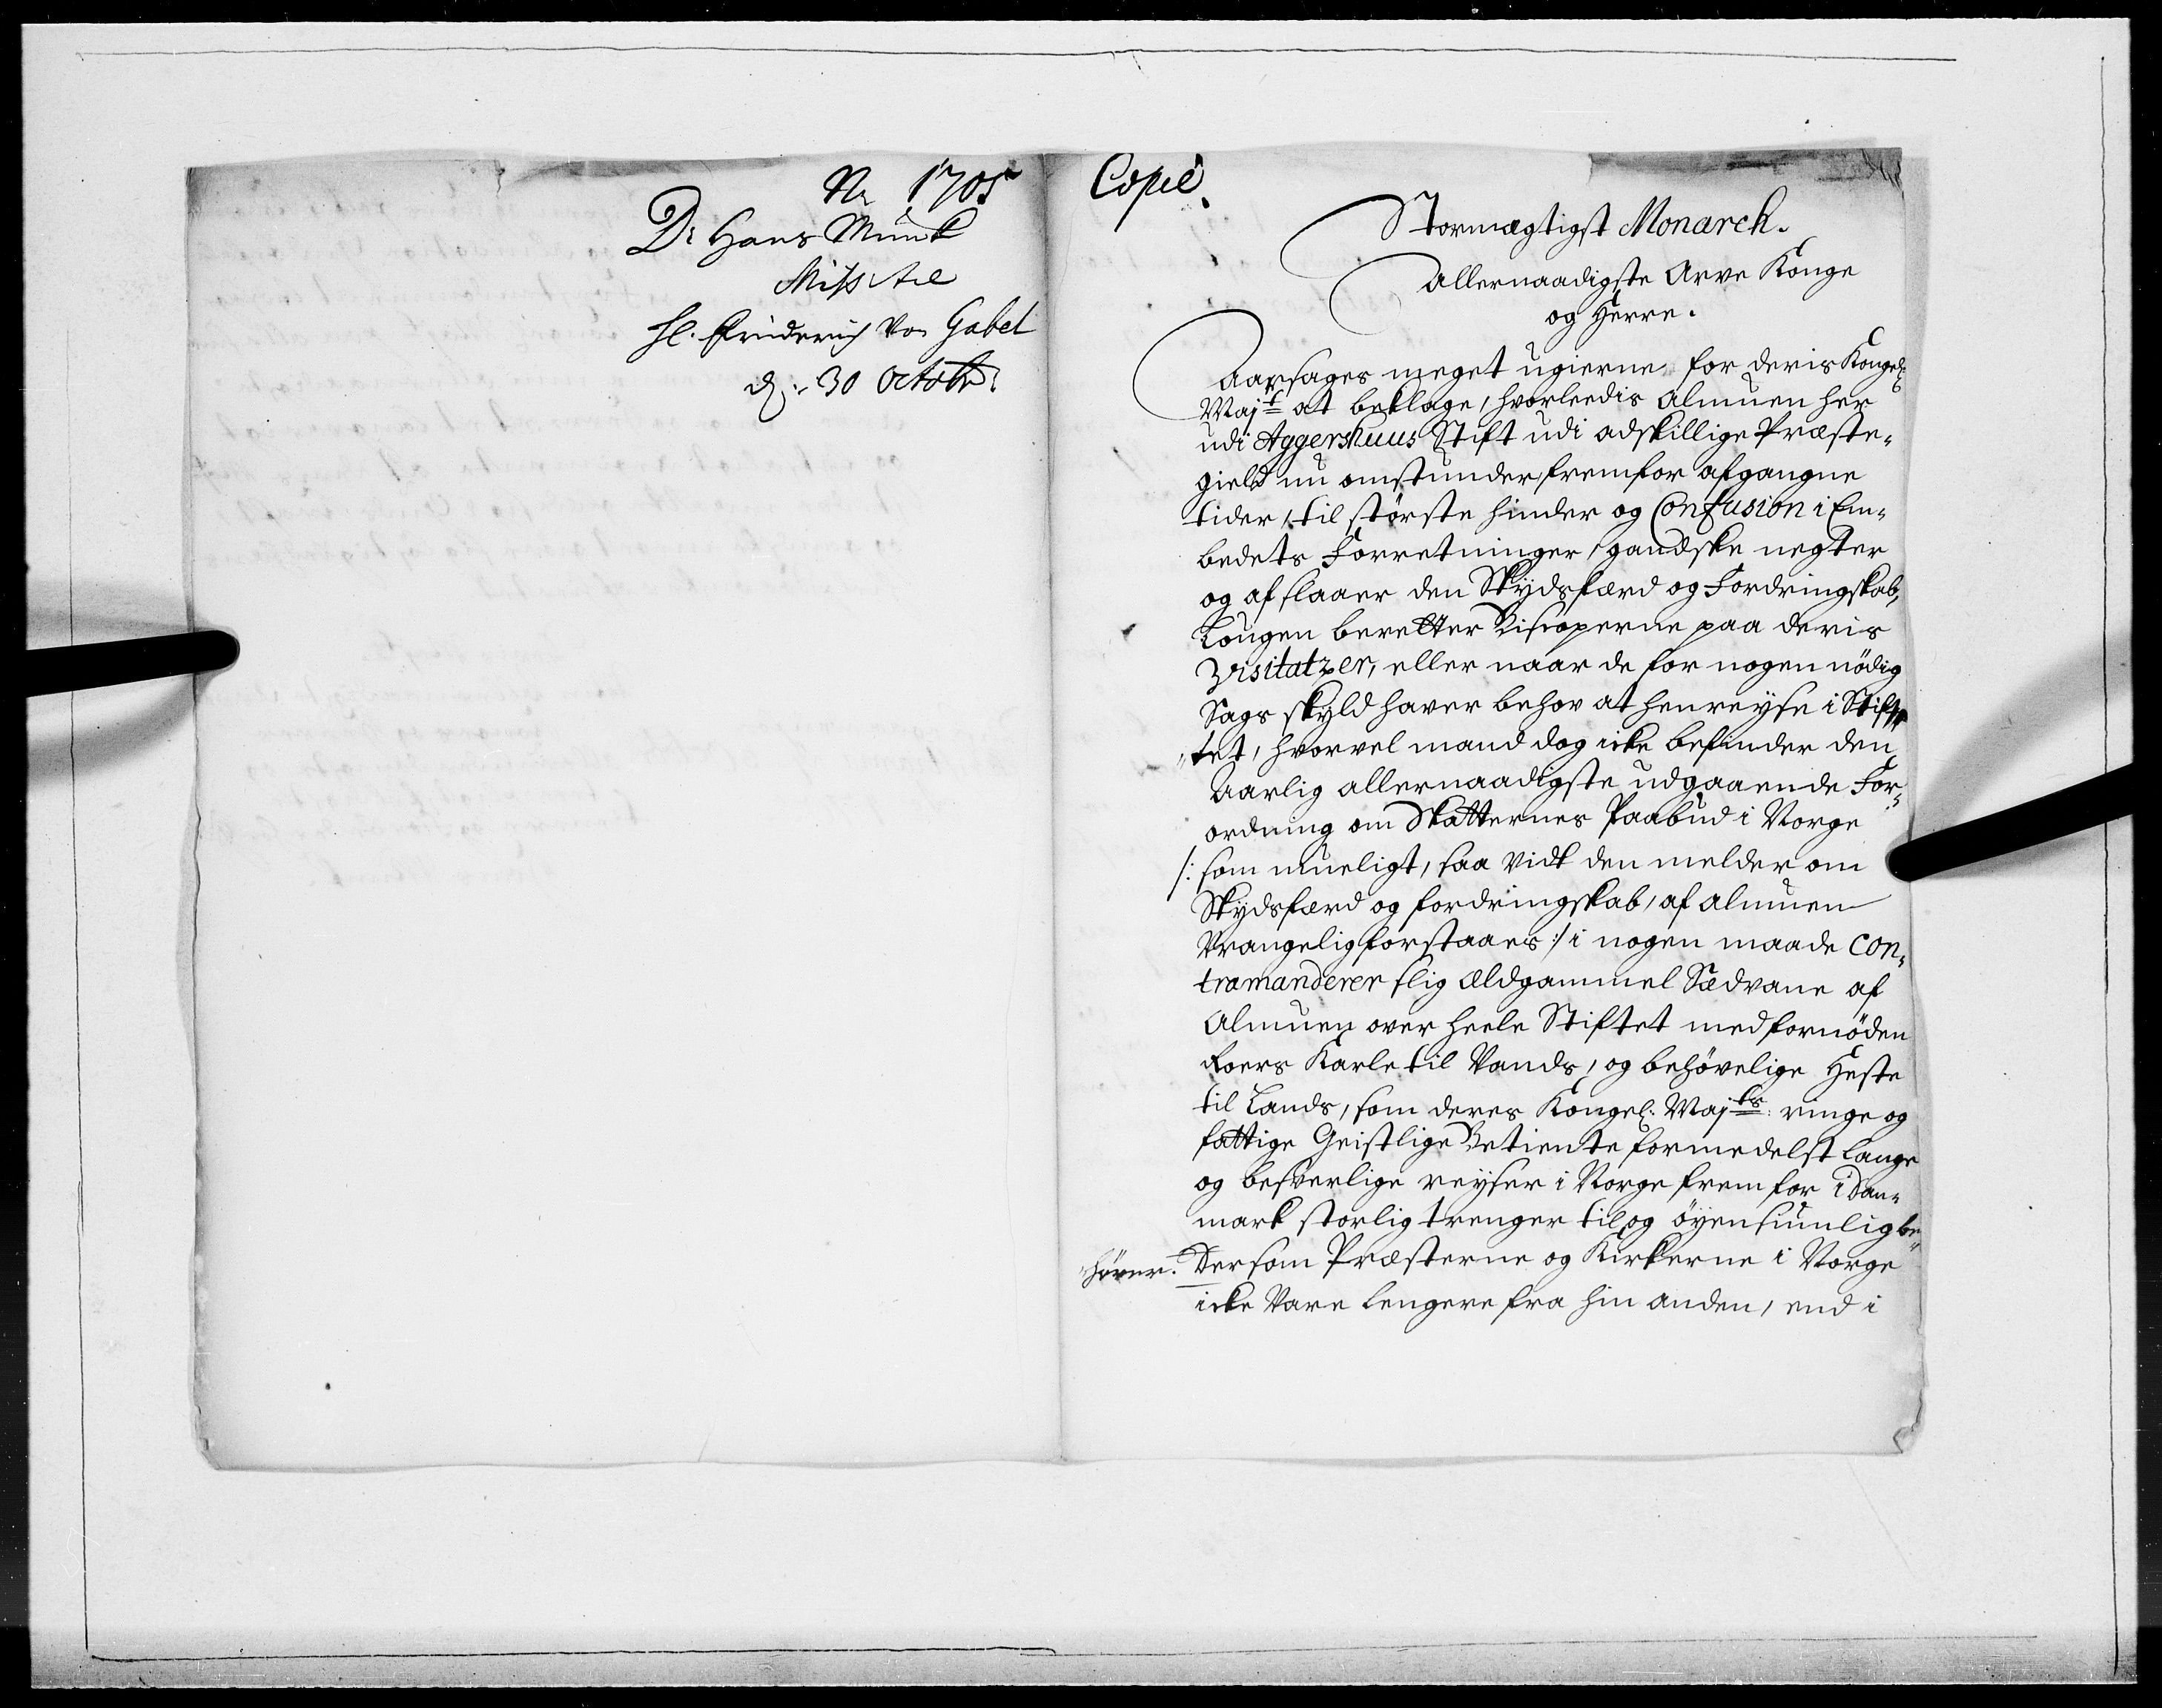 Nr 1705
Dr Hans Munk
Miss til
Hl. Friderich Von Gabel
d: 30 Octobr:
Copie.
Stormægtigst Monarch.
Allernaadigste Arve Konge
og Herre.
Aarsages meget ugierne for deris Kongel:
Majt at beklage, hvorleedis Almuen her
udi Aggershuus Stift udi adskillige Præste-
gield nu omstunder fremfor afgangne
tider, til største hinder og Confusion i Em-
bedets Forretninger, gandske negter
og afslaaer den Skydsfærd og Fordringskab,
Lougen beretter Bisoperne paa deris
Visitatzer, eller naar de for nogen nödig
Sags skyld haver behov at henreyse i Stift-
tet, hvorvel mand dog icke befinder den
Aarlig allernaadigste udgaaende For-
ordning om Skatternes Paabud i Norge
/: som mueligt, saa vidt den melder om
Skydsfærd og fordringskab, af almuen
Vrangelig forstaaes :/ i nogen maade con-
tramanderer slig Ældgammel Sædvane af
Almuen over heele Stiftet med fornöden
Roers Karle til Vands, og behövelige Heste
til Lands, som deres Kongel: Majts: ringe og
fattige Geistlige Betiente formedelst lange
og besverlige reyser i Norge frem for i Dan-
mark storlig trenger til og öyensiunlig be-
höver. Dersom Præsterne og Kirkerne i Norge
icke Vare lengere fra hin anden, end i